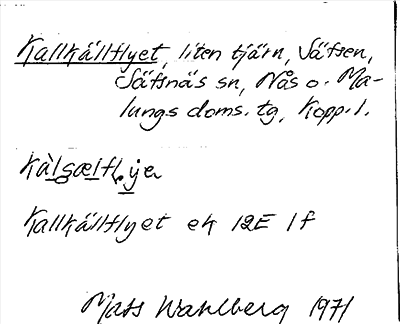 Kallkällflyet, liten tjärn, Säfsen,
Säfsnäs sn, Nås o. Ma-
lungs doms. tg, Kopp. l.
Kallkällflyet ek 12E 1f
Mats Wahlberg 1971